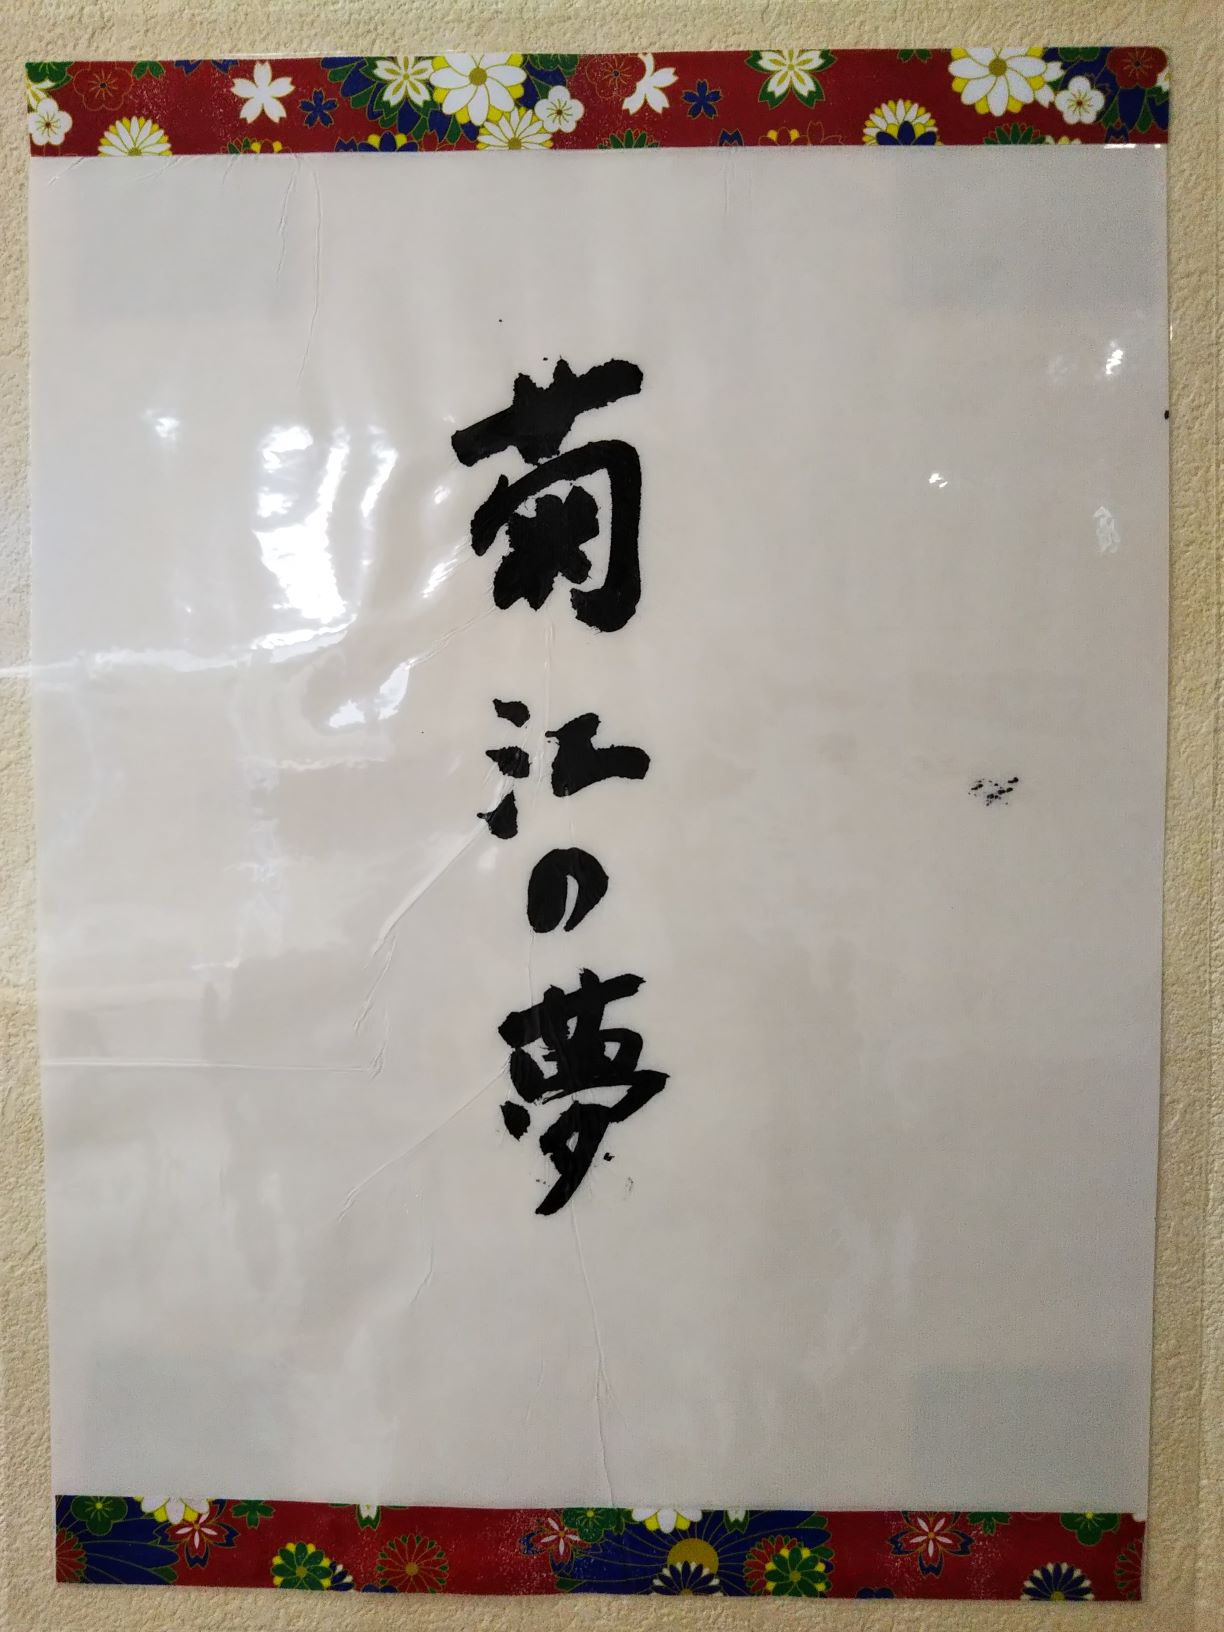 菊江の夢